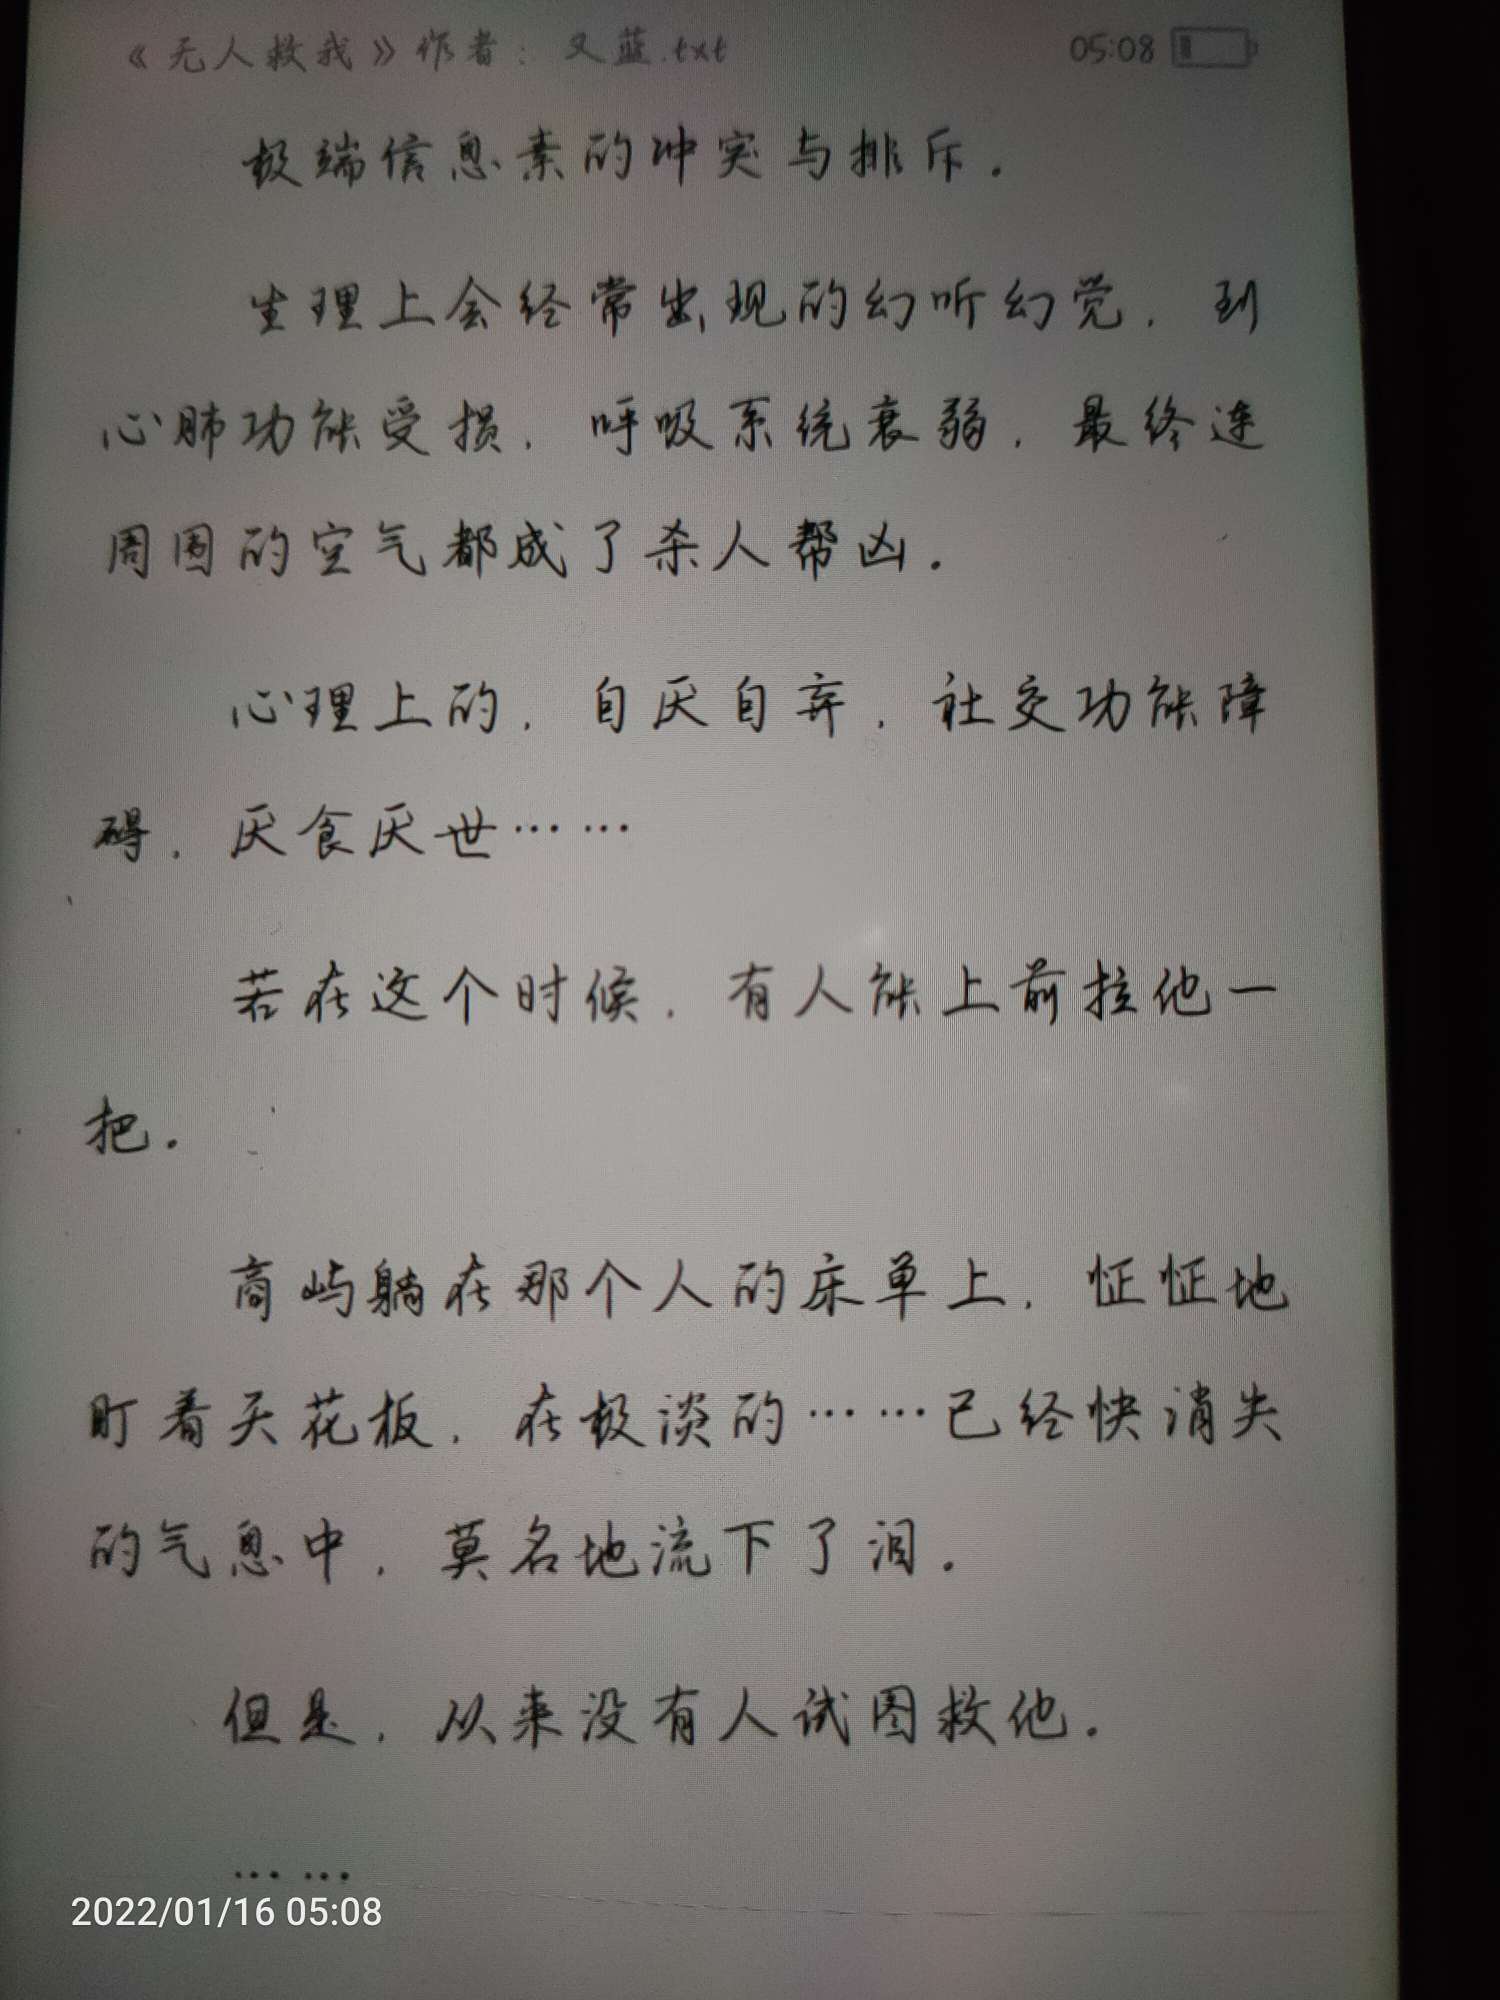 《无人救我》作者：又蓝.txt 05:08
极端信息素的冲突与排斥.
生理上会经常出现的幻听幻觉, 到
心肺功能受损, 呼吸系统衰弱, 最终连
周围的空气都成了杀人帮凶.
心理上的, 自厌自弃, 社交功能障
碍, 厌食厌世……
若在这个时候, 有人能上前拉他一
把.
商屿躺在那个人的床单上, 怔怔地
盯着天花板, 在极淡的……已经快消失
的气息中, 莫名地流下了泪.
但是, 从来没有人试图救他.
……
2022/01/16 05:08